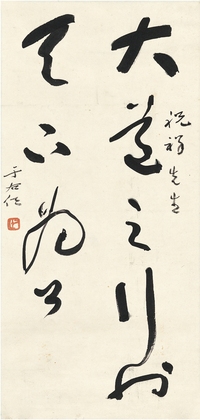 祝祥先生
大道之行也
天下為公
于右任